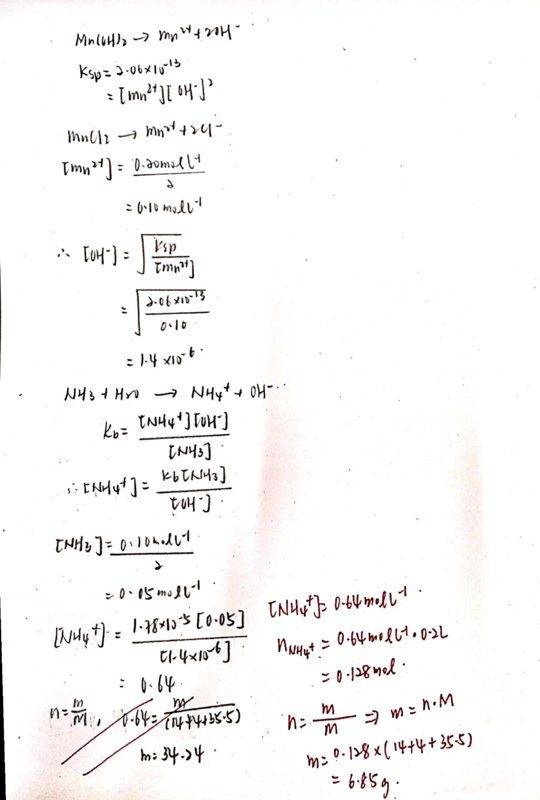 Mn(OH)2 → Mn²⁺ + 2OH⁻
Ksp = 2.06×10⁻¹³
= [Mn²⁺][OH⁻]²
MnCl2 → Mn²⁺ + 2Cl⁻
[Mn²⁺] = 0.20molL⁻¹ / 2
= 0.10molL⁻¹
∴ [OH⁻] = √(Ksp / [Mn²⁺])
= √(2.06×10⁻¹³ / 0.10)
= 1.4×10⁻⁶.
NH3 + H2O → NH4⁺ + OH⁻
Kb = [NH4⁺][OH⁻] / [NH3]
∴ [NH4⁺] = Kb[NH3] / [OH⁻]
[NH3] = 0.10molL⁻¹ / 2
= 0.05molL⁻¹
[NH4⁺] = 1.78×10⁻⁵[0.05] / [1.4×10⁻⁶]
= 0.64
n = m/M, 0.64 = m / (14+4+35.5)
m = 34.24
[NH4⁺] = 0.64molL⁻¹
nNH4⁺ = 0.64molL⁻¹ · 0.2L
= 0.128mol.
n = m/M ⇒ m = n·M
m = 0.128×(14+4+35.5)
= 6.85g.